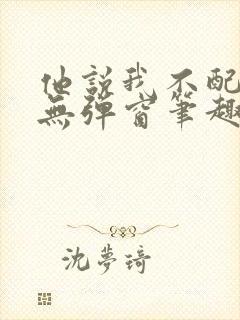 他説我不配
無彈窗筆趣
沈夢琦